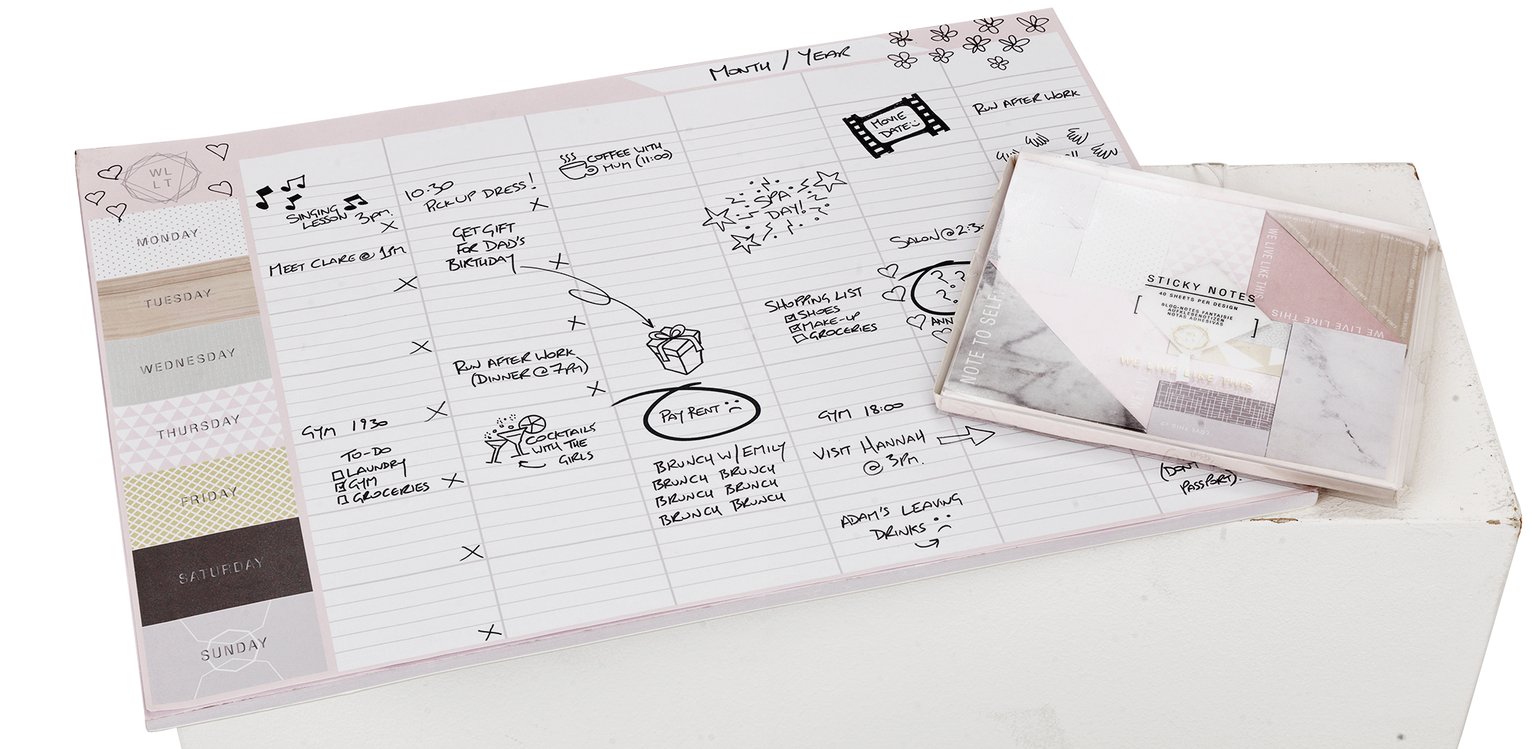 MONTH / YEAR
WL
LT
MONDAY
TUESDAY
WEDNESDAY
THURSDAY
FRIDAY
SATURDAY
SUNDAY
SINGING
LESSON 3pm.
X
MEET CLARE @ 1PM
X
X
GYM 1930
X
TO-DO
LAUNDRY
GYM
GROCERIES
X
X
X
10:30
PICK UP DRESS!
X
GET GIFT
FOR DAD'S
BIRTHDAY
X
X
RUN AFTER WORK
(DINNER @ 7PM)
X
COCKTAILS
WITH THE
GIRLS
COFFEE WITH
MUM (11:00)
PAY RENT
BRUNCH W/ EMILY
BRUNCH BRUNCH
BRUNCH BRUNCH
BRUNCH BRUNCH
SPA
DAY!
SHOPPING LIST
SHOES
MAKE-UP
GROCERIES
GYM 18:00
VISIT HANNAH
@ 3PM.
ADAM'S LEAVING
DRINKS
MOVIE
DATE
SALON @ 2:30
? ?
?
ANN
RUN AFTER WORK
(DON'T
PASSPORT).
STICKY NOTES
40 SHEETS PER DESIGN
BLOC-NOTES FANTAISIE
AUFKLEBENOTIZEN
NOTAS ADHESIVAS
NOTE TO SELF
WE LIVE LIKE THIS
WE LIVE LIKE THIS
WE LIVE LIKE THIS